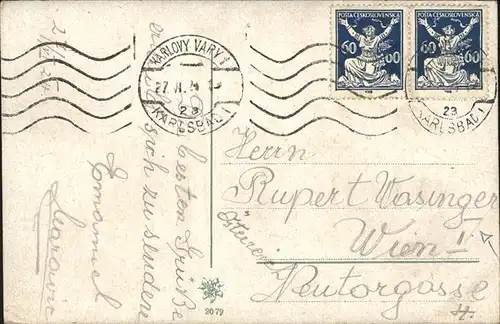 POŠTA ČESKOSLOVENSKÁ
60
60
POŠTA ČESKOSLOVENSKÁ
60
60
KARLOVY VARY 1
27.VI.
2a
KARLSBAD 1
2a
KARLSBAD 1
Herrn
Rupert Wasinger
Wien I
Neutorgasse
besten Grüße
sich zu senden
Emanuel
2079